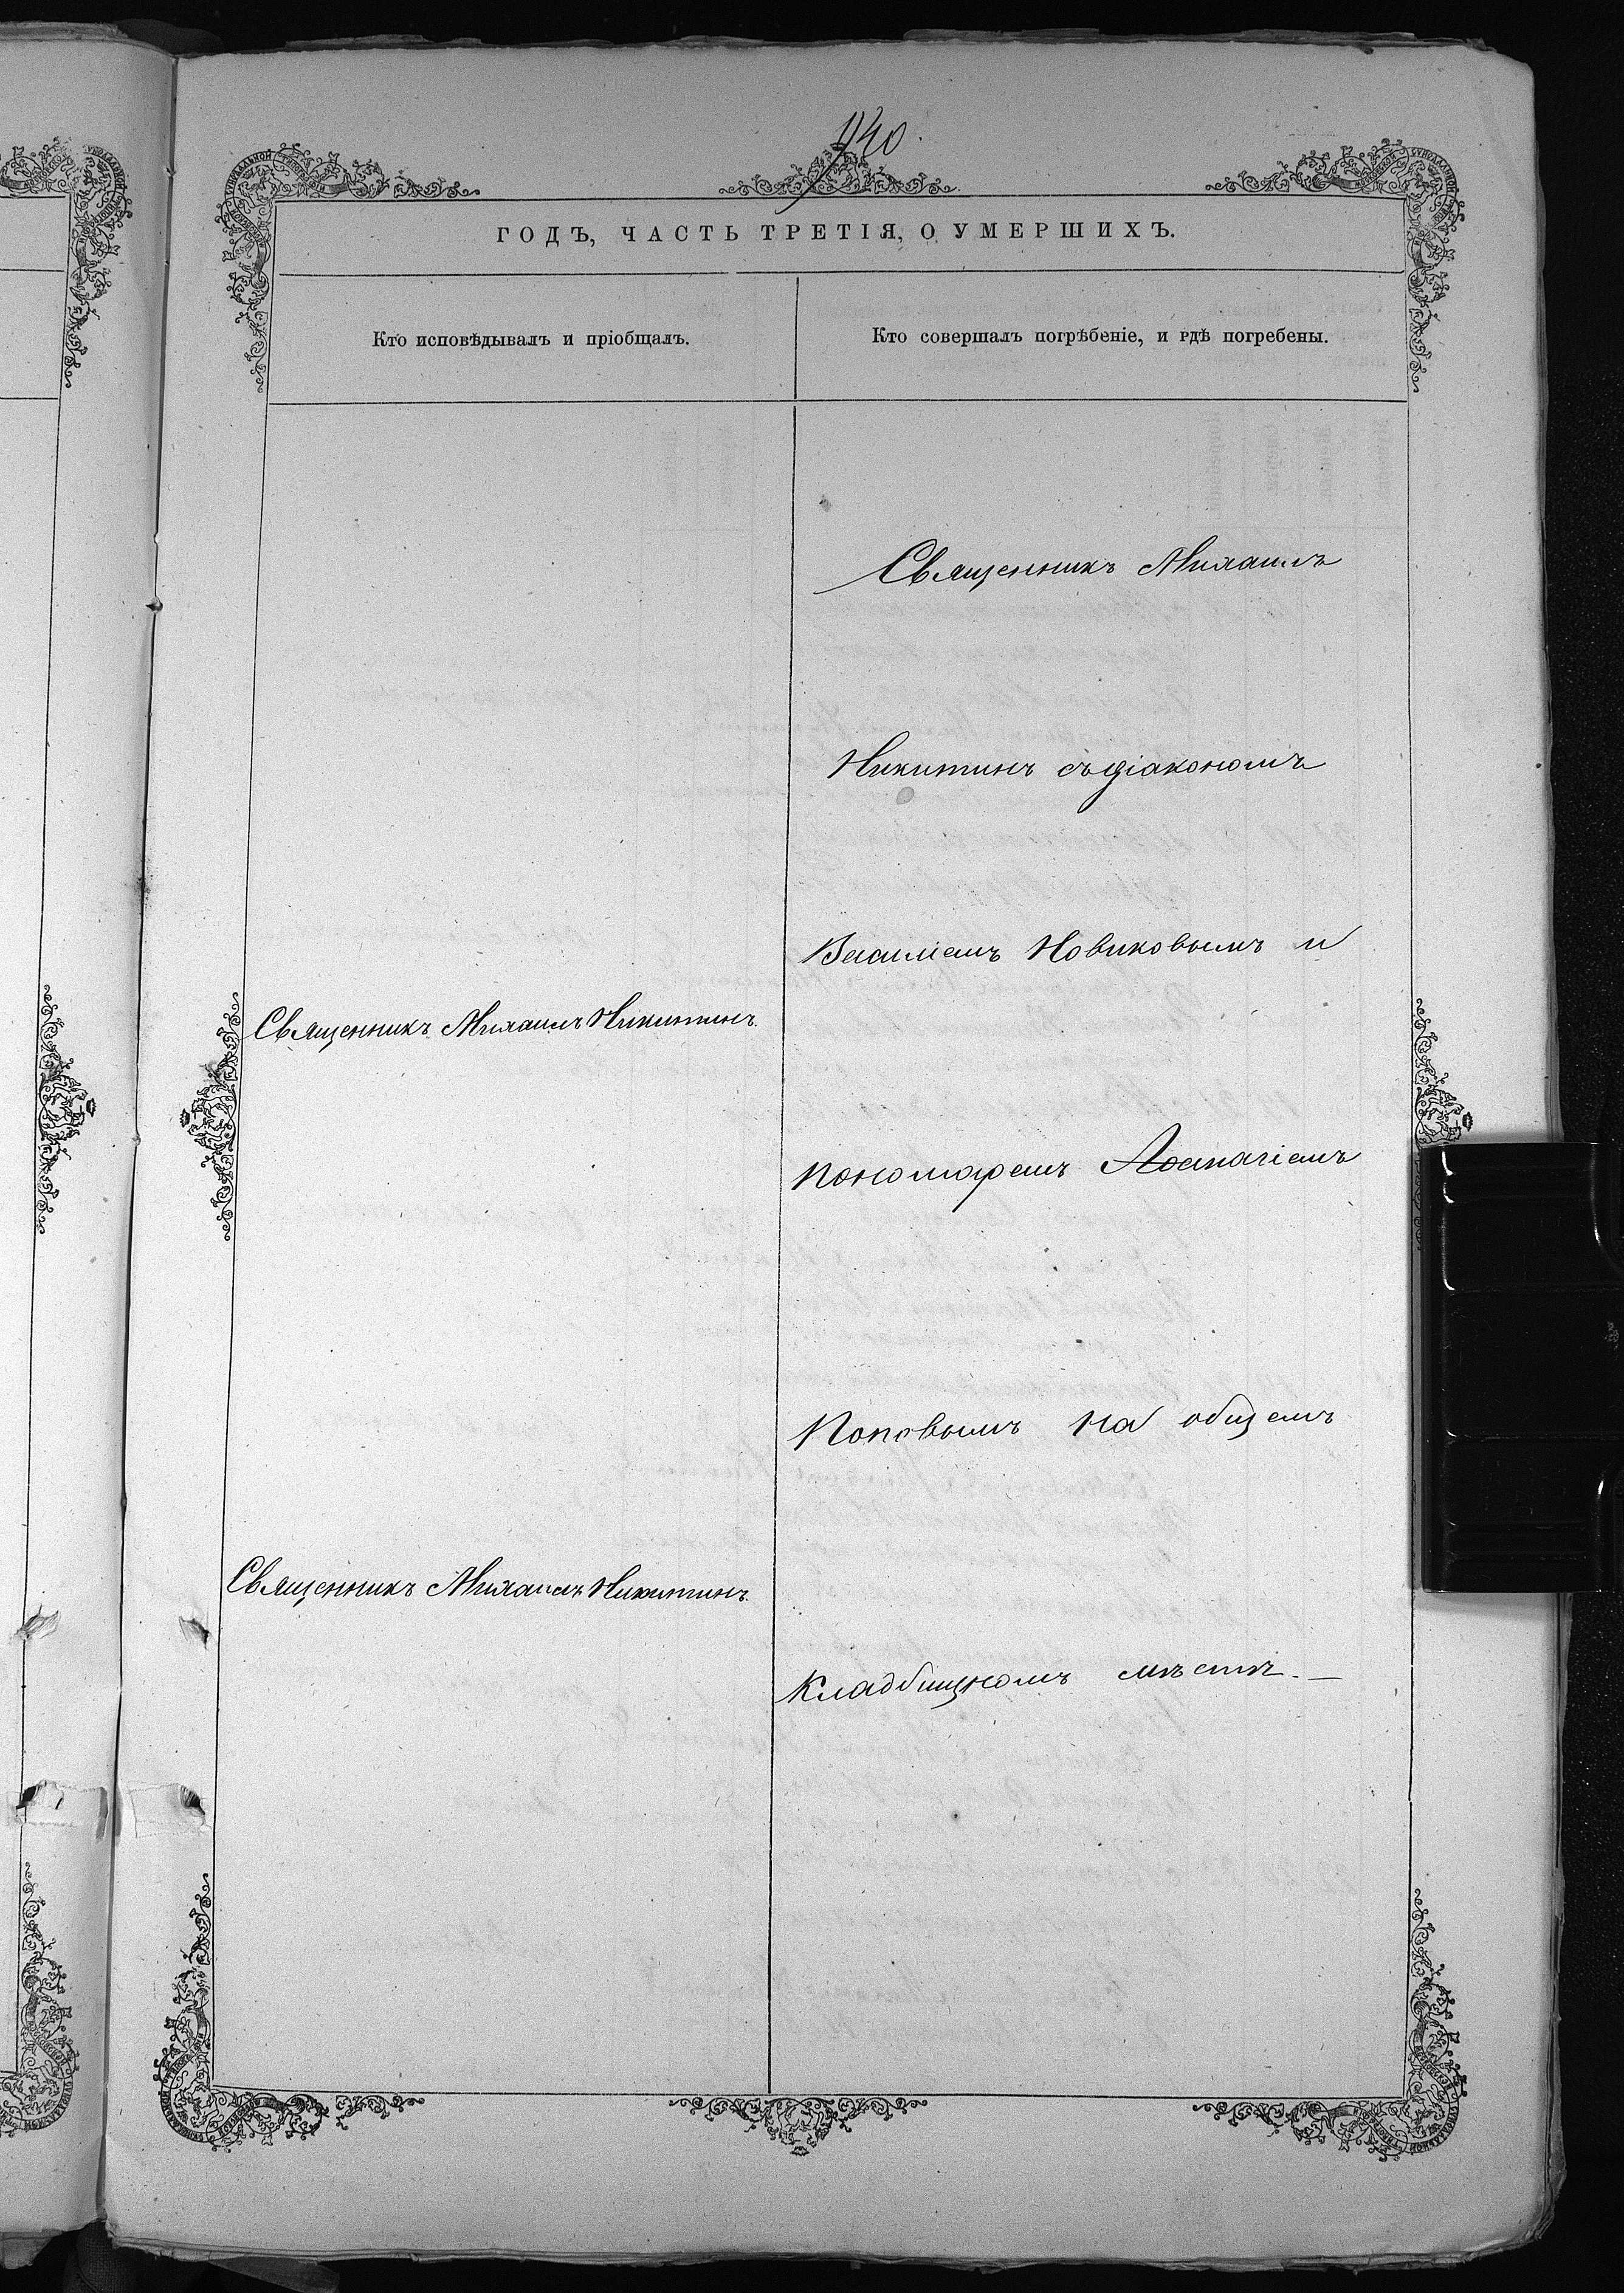 940.
ГОДЪ, ЧАСТЬ ТРЕТІЯ, О УМЕРШИХЪ.
Кто исповѣдывалъ и пріобщалъ.
Кто совершалъ погрѣбеніе, и гдѣ погребены.
Священникъ Михаилъ
Никитинъ съ діакономъ
Василіемъ Новиковымъ и
Священникъ Михаилъ Никитинъ.
пономаремъ Аѳанасіемъ
Поповымъ на общемъ
Священникъ Михаилъ Никитинъ.
Кладбищномъ мѣстѣ. —